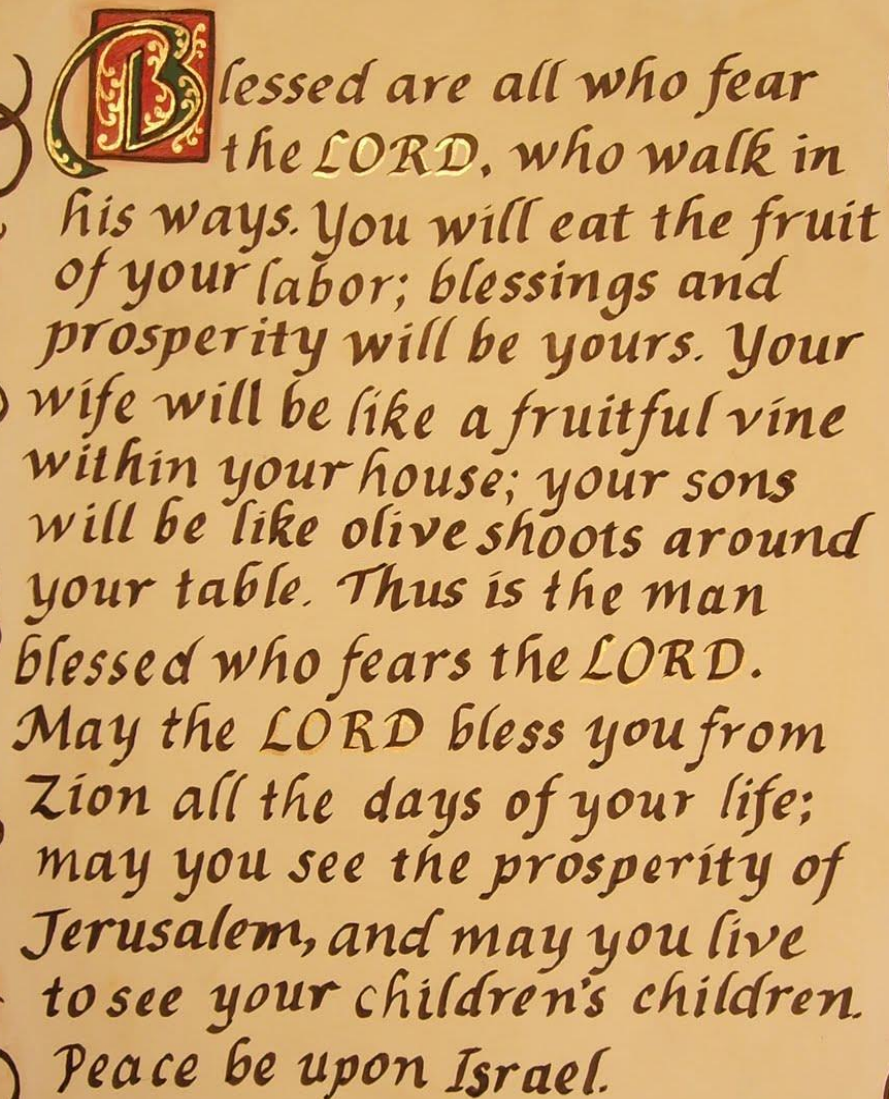 Blessed are all who fear
the LORD, who walk in
his ways. You will eat the fruit
of your labor; blessings and
prosperity will be yours. Your
wife will be like a fruitful vine
within your house; your sons
will be like olive shoots around
your table. Thus is the man
blessed who fears the LORD.
May the LORD bless you from
Zion all the days of your life;
may you see the prosperity of
Jerusalem, and may you live
to see your children's children.
Peace be upon Israel.